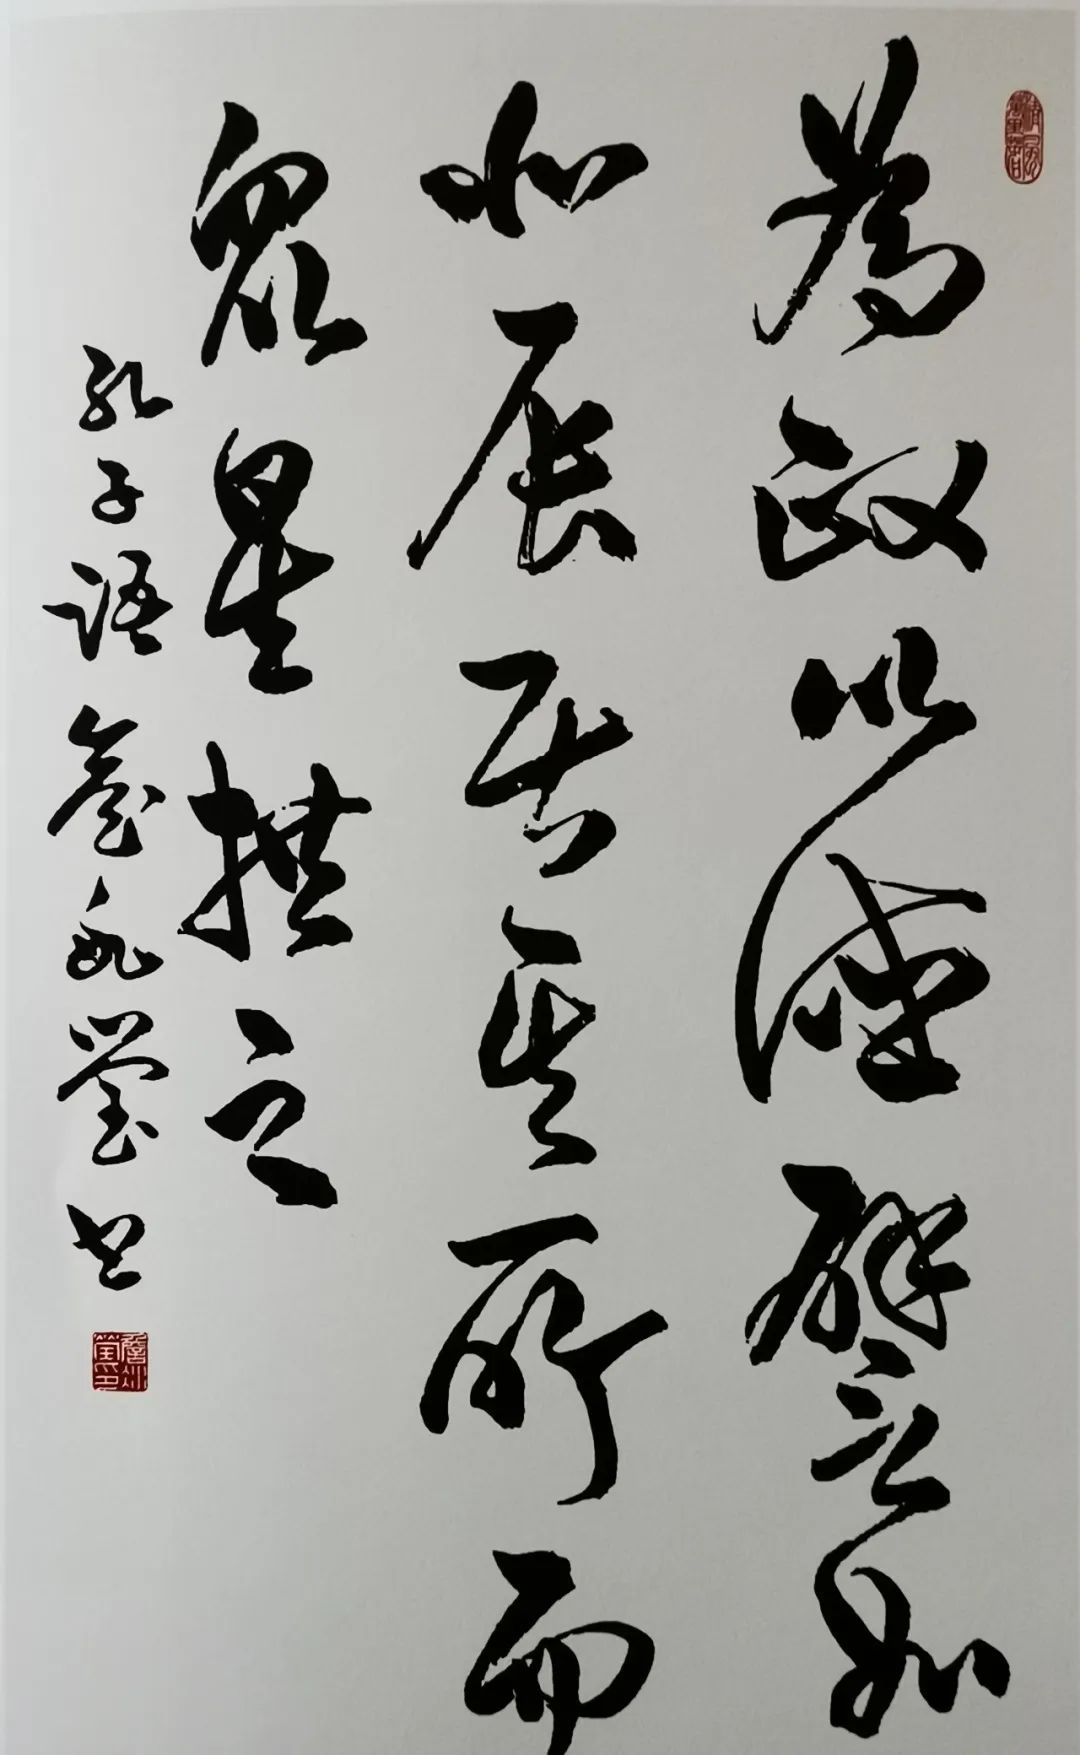 為政以德譬如
北辰居其所而
眾星拱之
孔子語 詹兆瑩書